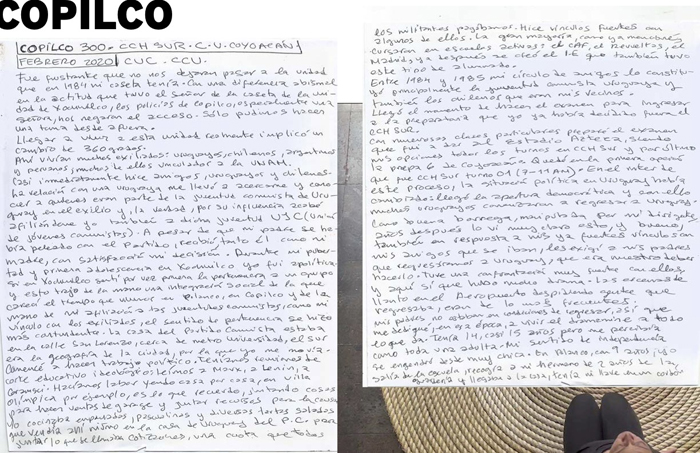 COPILCO
COPILCO 300. CCH SUR. C.U. COYOACÁN
FEBRERO 2020 CUC. CCU.
Fue frustante que no nos dejaran pasar a la unidad
que en 1984 mi caseta tenía. Con una diferencia abismal
en la actitud que tuvo el señor de la caseta de la uni-
dad de Xomulco, los policías de Copilco, especialmente una
señora, nos negaron el acceso. Sólo pudimos hacer
una toma desde afuera.
Llegar a vivir a esta unidad realmente implicó un
cambio de 360 grados.
Ahí vivían muchos exiliados: uruguayos, chilenos, argentinos
y peruanos, muchos de ellos vinculados a la UNAM.
Casi inmediatamente hice amigos, uruguayos y chilenos.
La relación con una uruguaya me llevó a acercarme y cono-
cer a quienes eran parte de la juventud comunista de Uru-
guay en el exilio y, la verdad, por su influencia acabé
afiliándome yo también a dicha juventud UJC (Unión
de jóvenes comunistas). A pesar de que mi padre se ha-
bía peleado con el Partido, recibió tanto él como mi
madre, con satisfacción mi decisión. Durante mi puber-
tad y primera adolescencia en Xomulco yo fui apolítica,
si en Xomulco sentí por vez primera la pertenencia a un grupo
y esto trajo de la mano una integración social de la que
carecí el tiempo que vivimos en Polanco, en Copilco y de la
mano de mi afiliación a las juventudes comunistas, como mi
vínculo con los exiliados, el sentido de pertenencia se hizo
más contundente. La casa del Partido Comunista estaba
en la calle San Lorenzo, cerca de metro universidad, el sur
era la geografía de la ciudad, por la que yo me movía.
Comencé a hacer trabajo político. Teníamos seminarios de
corte educativo ideológico: leímos a Marx, a Lenin, a
Gramsci. Hacíamos labor yendo casa por casa, en Villa
Olímpica por ejemplo, es lo que recuerdo, juntando cosas
para hacer ventas de garage y juntar recursos para la causa
yo cocinaba empanadas, pascualinas y diversas tortas saladas
que vendía allí mismo en la casa de Uruguay del P.C. para
juntar lo que se llamaba cotizaciones, una cuota que todos
los militantes pagábamos. Hice vínculos fuertes con
algunos de ellos. La gran mayoría, como ya mencioné
cursaron en escuelas activas: el CAF, el Revueltas, el
Madrid y ya después se creó el I.E que también tuvo
este tipo de alumnado.
Entre 1984 y 1985 mi círculo de amigos lo constitu-
yó principalmente la juventud comunista uruguaya y
también los chilenos que eran mis vecinos.
Llegó el momento de hacer el examen para ingresar
a la preparatoria que yo ya había decidido fuera el
CCH SUR.
Con numerosas clases particulares preparé el examen
que fui a dar al Estadio Azteca, siendo
mis opciones todos los turnos en CCH Sur y por último
la prepa 6 de Coyoacán. Quedé en la primera opción
que fue CCH Sur turno 01 (7-11 Am). En el inter de
este proceso, la situación política en Uruguay había
cambiado: llegó la apertura democrática y con ella
muchos uruguayos comenzaron a regresar a Uruguay.
Como buena borrega, manipulada por mi dirigente
años después lo vi muy claro esto, y bueno,
también en respuesta a mis ya fuertes vínculos con
mis amigos que se iban, les exigí a mis padres
que regresáramos a Uruguay, que era nuestro deber
hacerlo. Tuve una confrontación muy fuerte con ellos,
y aquí sí que hubo mucho drama: las escenas de
llanto en el aeropuerto despidiendo gente que
regresaba, eran de lo más frecuentes.
Mis padres no estaban en condiciones de regresar, así que
me dediqué, en esa época, a vivir el desarraigo a todo
lo que da. Tenía 14, casi 15 años pero me percibía
como toda una adulta. Mi sentido de independencia
se engendró desde muy chica. En Polanco, con 9 años, yo
salía de la escuela, recogía a mi hermano de 2 años de la
guardería y llegaba a la casa, tenía mi llave en un cordón